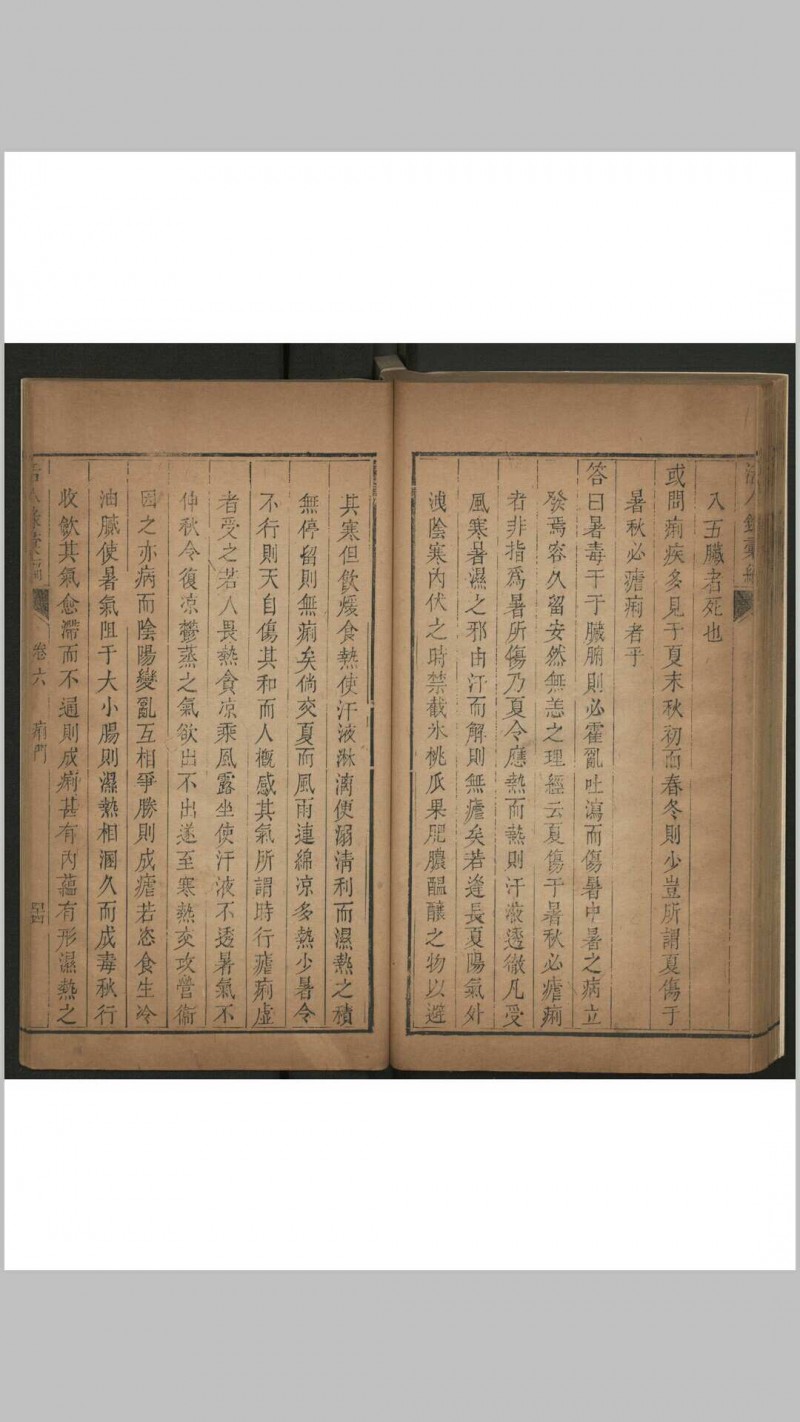 入五臟者死也
或問痢疾多見于夏末秋初而春冬則少豈所謂夏傷于
暑秋必瘧痢者乎
答曰暑毒干于臟腑則必霍亂吐瀉而傷暑中暑之病立
發焉容久留安然無恙之理經云夏傷于暑秋必瘧痢
者非指爲暑所傷乃夏令應熱而熱則汗液透徹凡受
風寒暑濕之邪由汗而解則無瘧矣若逢長夏陽氣外
洩陰寒內伏之時禁截氷桃瓜果肥膿醞釀之物以避
其寒但飲煖食熱使汗液淋漓便溺清利而濕熱之積
無停留則無痢矣倘交夏而風雨連綿凉多熱少暑令
不行則天自傷其和而人概感其氣所謂時行瘧痢虛
者受之若人畏熱貪凉乘風露坐使汗液不透暑氣不
伸秋令復凉鬱蒸之氣欲出不出遂至寒熱交攻營衞
因之亦病而陰陽變亂互相爭勝則成瘧若恣食生冷
油膩使暑氣阻于大小腸則濕熱相溷久而成毒秋行
收歛其氣愈滯而不通則成痢甚有內蘊有形濕熱之
卷六 痢門